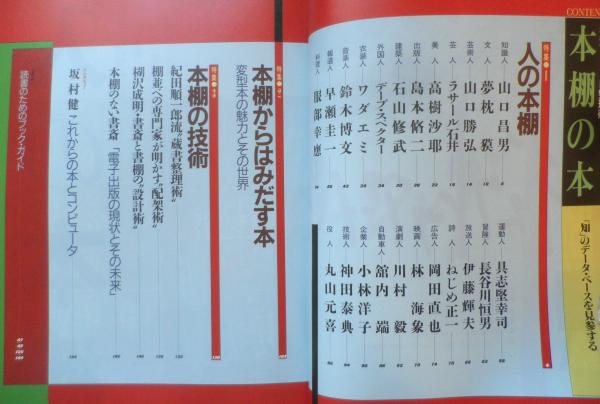 CONTEN
本棚の本
「知」のデータ・ベースを見参する
特集●1
人の本棚
知識人 山口昌男 6
文人 夢枕獏
芸術人 山口勝弘 14
芸人 ラサール石井 18
美人 高樹沙耶 22
出版人 島本脩二 26
建築人 石山修武 30
外国人 デーブ・スペクター 34
衣装人 ワダエミ 38
音楽人 鈴木博文 42
報道人 早瀬圭一
料理人 服部幸應
運動人 具志堅幸司
冒険人 長谷川恒男
放送人 伊藤輝夫 66
詩人 ねじめ正一 70
広告人 岡田直也 74
映画人 林海象 78
演劇人 川村毅
自動車人 舘内端
企業人 小林洋子
技術人 神田泰典
役人 丸山元喜
特集●2
本棚からはみだす本
変型本の魅力とその世界
特集●3
本棚の技術
紀田順一郎流“蔵書整理術”
棚並への専門家が明かす“配架術”
樹沢成明・書斎と書棚の“設計術”
本棚のない書斎 「電子出版の現状とその未来」
坂村健 これからの本とコンピュータ
読書のためのブック・ガイド